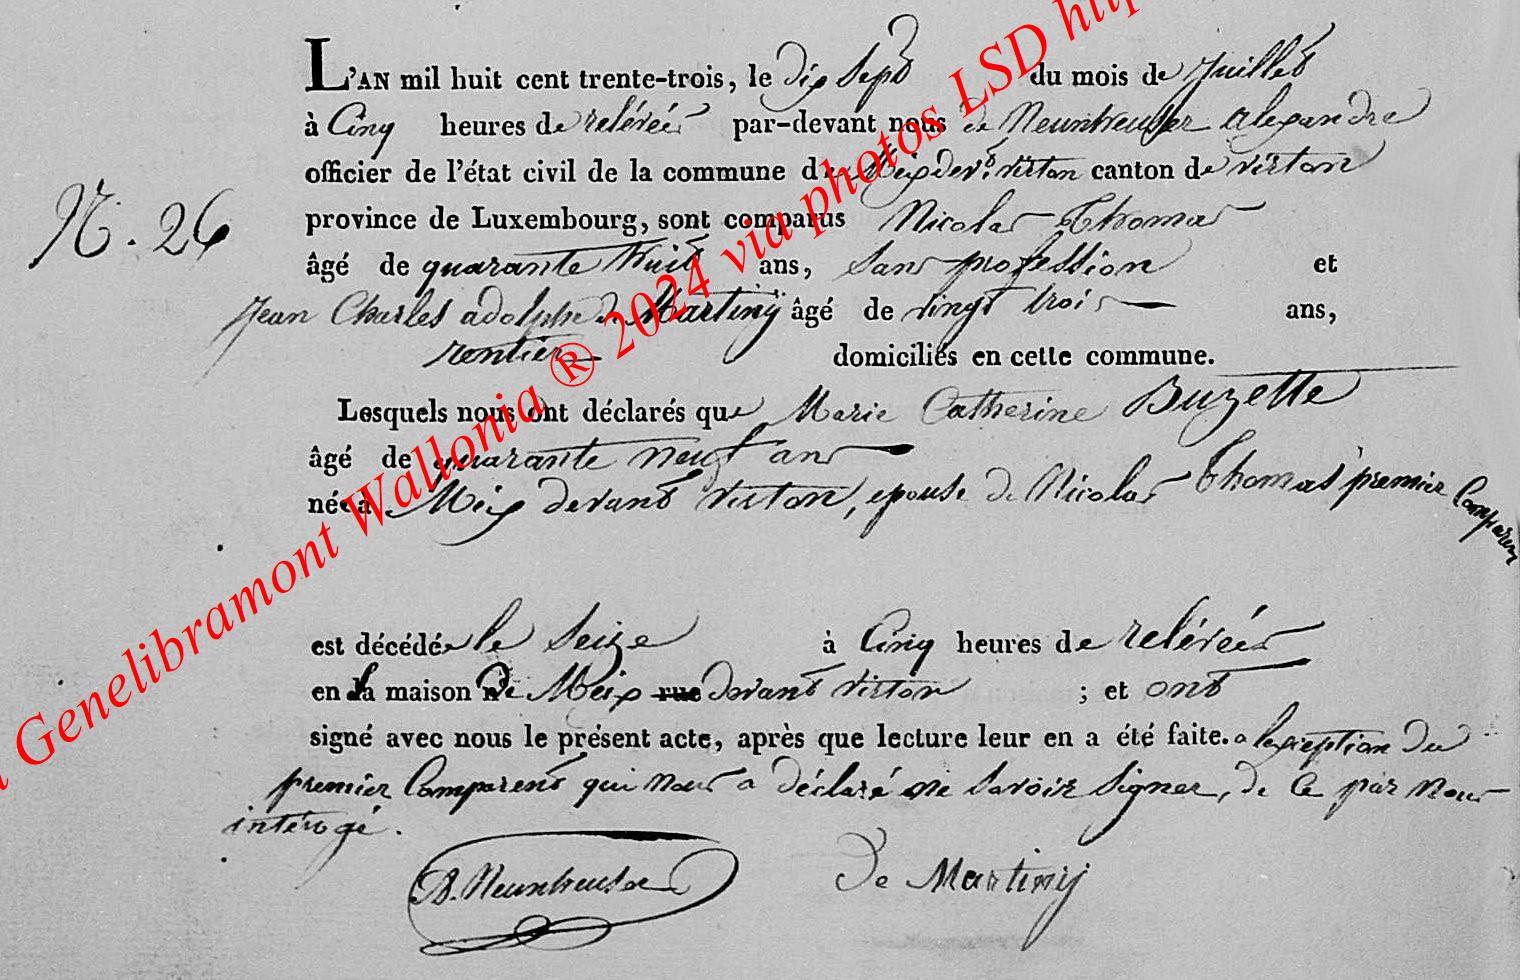 L'AN mil huit cent trente-trois, le dix Sept du mois de Juillet
à Cinq heures de relévées par-devant nous de Neunheuser alexandre
officier de l'état civil de la commune de Meix devt. virton canton de virton
N. 26
province de Luxembourg, sont comparus Nicolas Thomas
âgé de quarante huit ans, Sans profession et
Jean Charles adolphe de Martiny âgé de vingt trois ans,
rentier domiciliés en cette commune.
Lesquels nous ont déclarés que Marie Catherine Buzette
âgé de quarante neuf ans
née à Meix devant virton, epouse de Nicolas Thomas premier Comparen
est décédée le Seize à Cinq heures de relévées
en la maison de Meix rue devant virton ; et ont
signé avec nous le présent acte, après que lecture leur en a été faite. a lexception du
premier Comparent qui nous a déclaré ne Savoir Signer, de Ce par nous
intérogé.
A. Neunheuser de Martiny
Genelibramont Wallonia ® 2024 via photos LSD